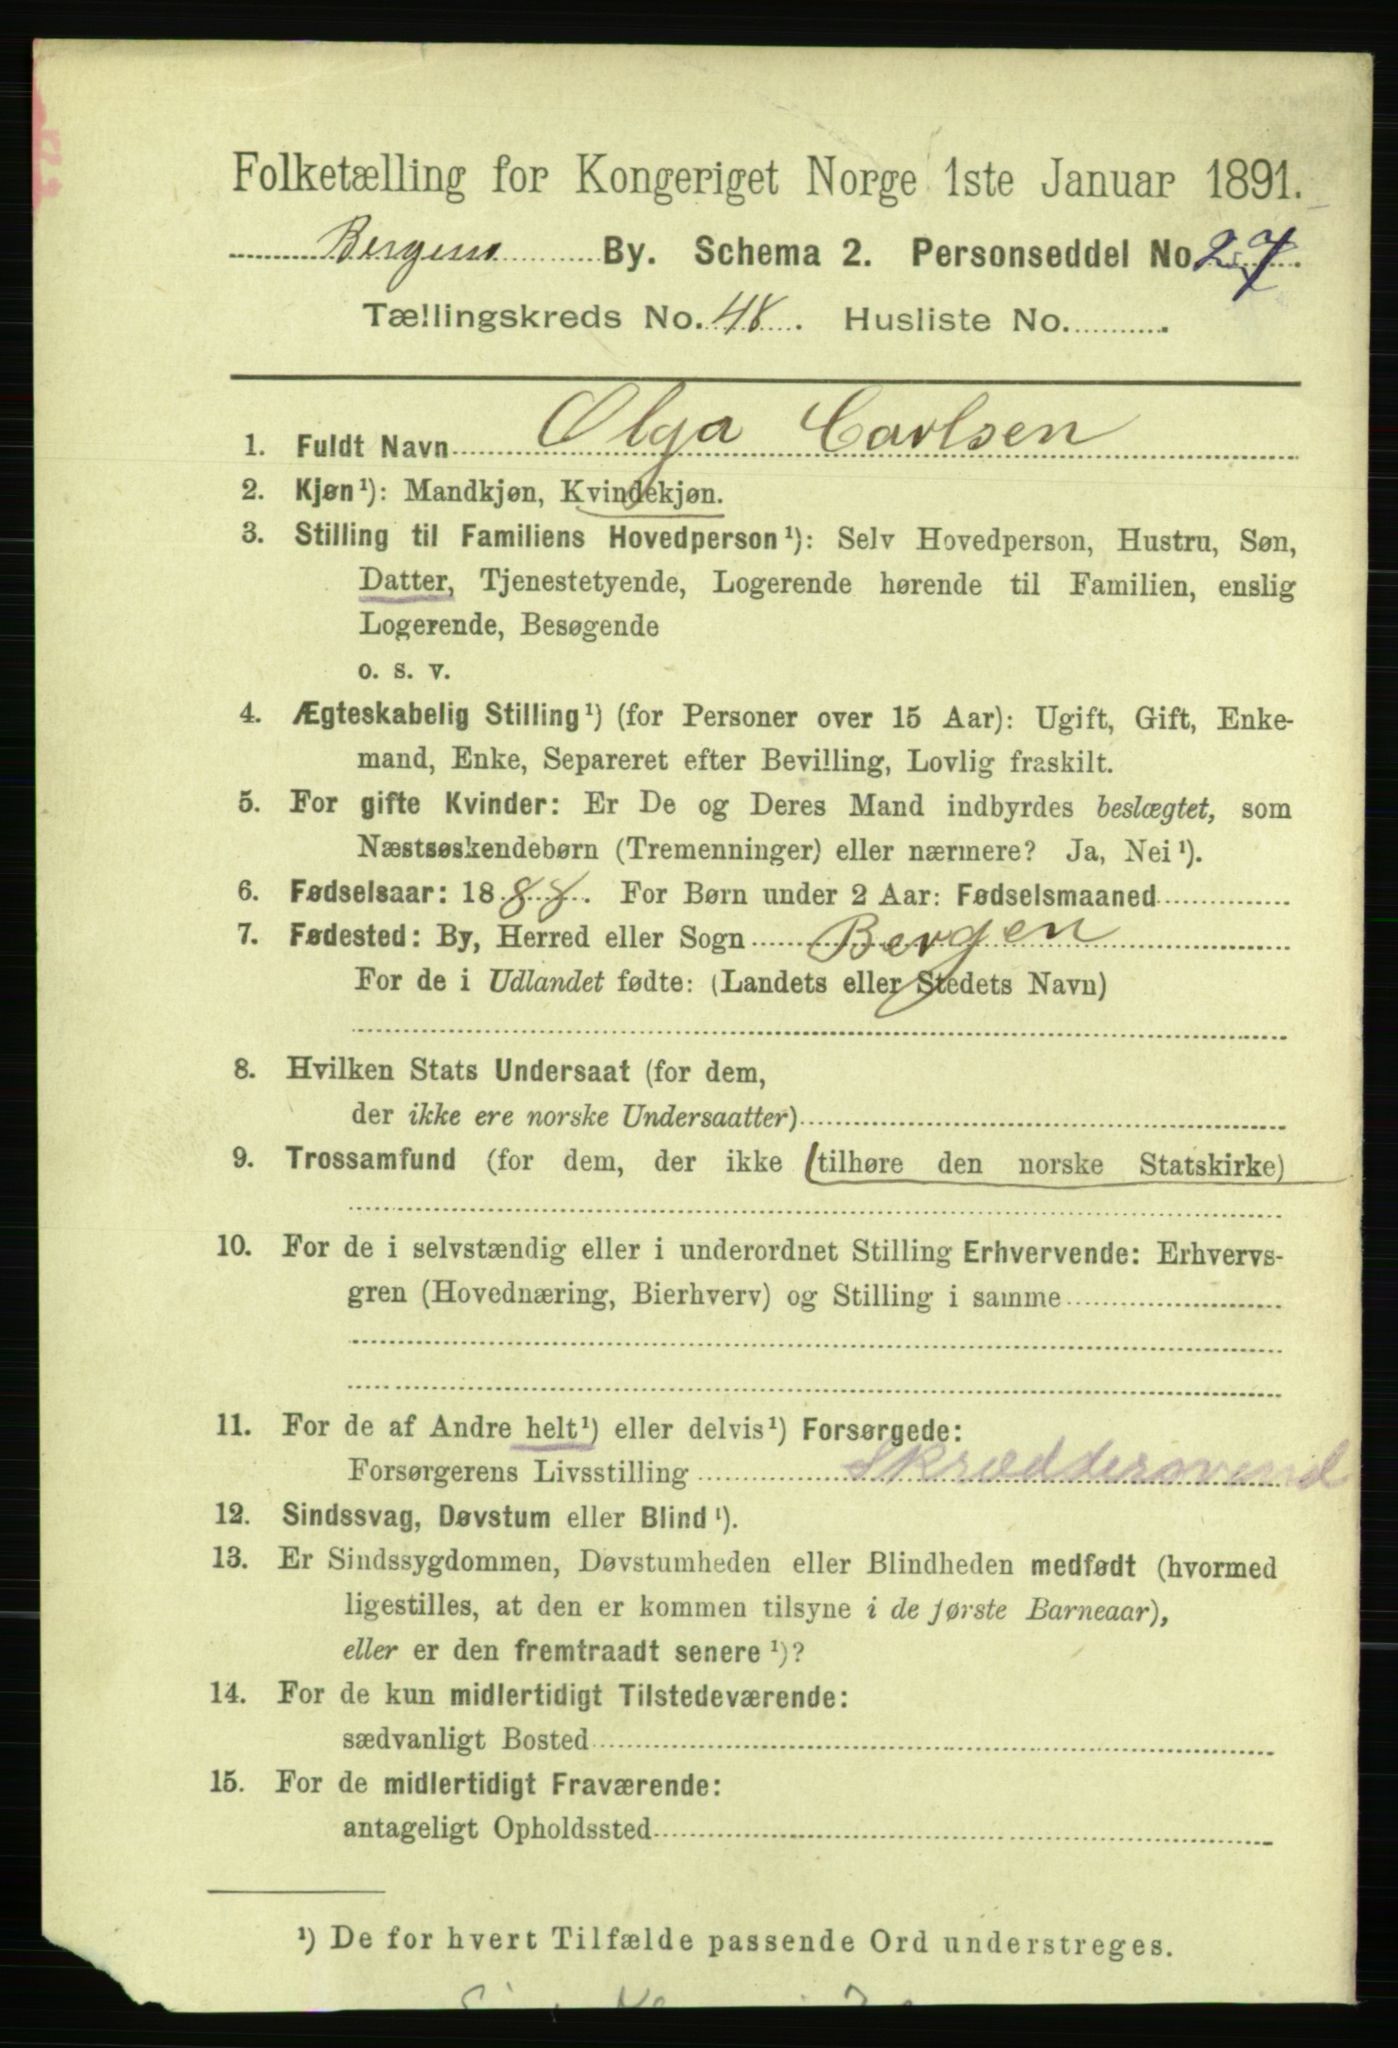 Folketælling for Kongeriget Norge 1ste Januar 1891.
Bergens By. Schema 2. Personseddel No 27.
Tællingskreds No. 48. Husliste No. .
1. Fuldt Navn Olga Carlsen
2. Kjøn¹): Mandkjøn, Kvindekjøn.
3. Stilling til Familiens Hovedperson¹): Selv Hovedperson, Hustru, Søn,
Datter, Tjenestetyende, Logerende hørende til Familien, enslig
Logerende, Besøgende
o. s. v.
4. Ægteskabelig Stilling¹) (for Personer over 15 Aar): Ugift, Gift, Enke-
mand, Enke, Separeret efter Bevilling, Lovlig fraskilt.
5. For gifte Kvinder: Er De og Deres Mand indbyrdes beslægtet, som
Næstsøskendebørn (Tremenninger) eller nærmere? Ja, Nei¹).
6. Fødselsaar: 1888. For Børn under 2 Aar: Fødselsmaaned
7. Fødested: By, Herred eller Sogn Bergen
For de i Udlandet fødte: (Landets eller Stedets Navn)
8. Hvilken Stats Undersaat (for dem,
der ikke ere norske Undersaatter)
9. Trossamfund (for dem, der ikke (tilhøre den norske Statskirke)
10. For de i selvstændig eller i underordnet Stilling Erhvervende: Erhvervs-
gren (Hovednæring, Bierhverv) og Stilling i samme
11. For de af Andre helt¹) eller delvis¹) Forsørgede:
Forsørgerens Livsstilling Skræddersvend
12. Sindssvag, Døvstum eller Blind¹).
13. Er Sindssygdommen, Døvstumheden eller Blindheden medfødt (hvormed
ligestilles, at den er kommen tilsyne i de første Barneaar),
eller er den fremtraadt senere¹)?
14. For de kun midlertidigt Tilstedeværende:
sædvanligt Bosted
15. For de midlertidigt Fraværende:
antageligt Opholdssted
¹) De for hvert Tilfælde passende Ord understreges.